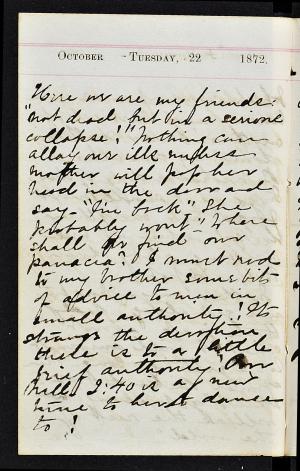 October Tuesday, 22 1872.
Here we are my friends:
"not dead but in a serious
collapse!" Nothing can
allay our ills unless
mother will pop her
head in the door and
say - "I'm back" She
probably won't" Where
shall we find our
panacea? I must read
to my brother some bits
of advice to men in
small authority! Its
strange the devotion
there is to a little
brief authority! Our
2:40 is a new
time to dance
to!